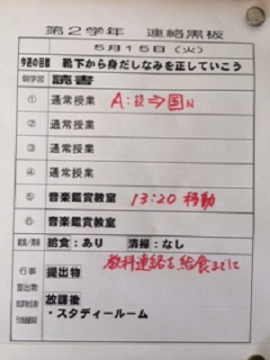 第2学年　連絡黒板
5月15日（火）
今週の目標　靴下から身だしなみを正していこう
朝学習　読書
①　通常授業　A:技⇒国N
②　通常授業
③　通常授業
④　通常授業
⑤　音楽鑑賞教室　13:20 移動
⑥　音楽鑑賞教室
給食/清掃　給食：あり　清掃：なし
教科連絡を給食までに
行事　提出物
提出物
放課後
・スタディールーム